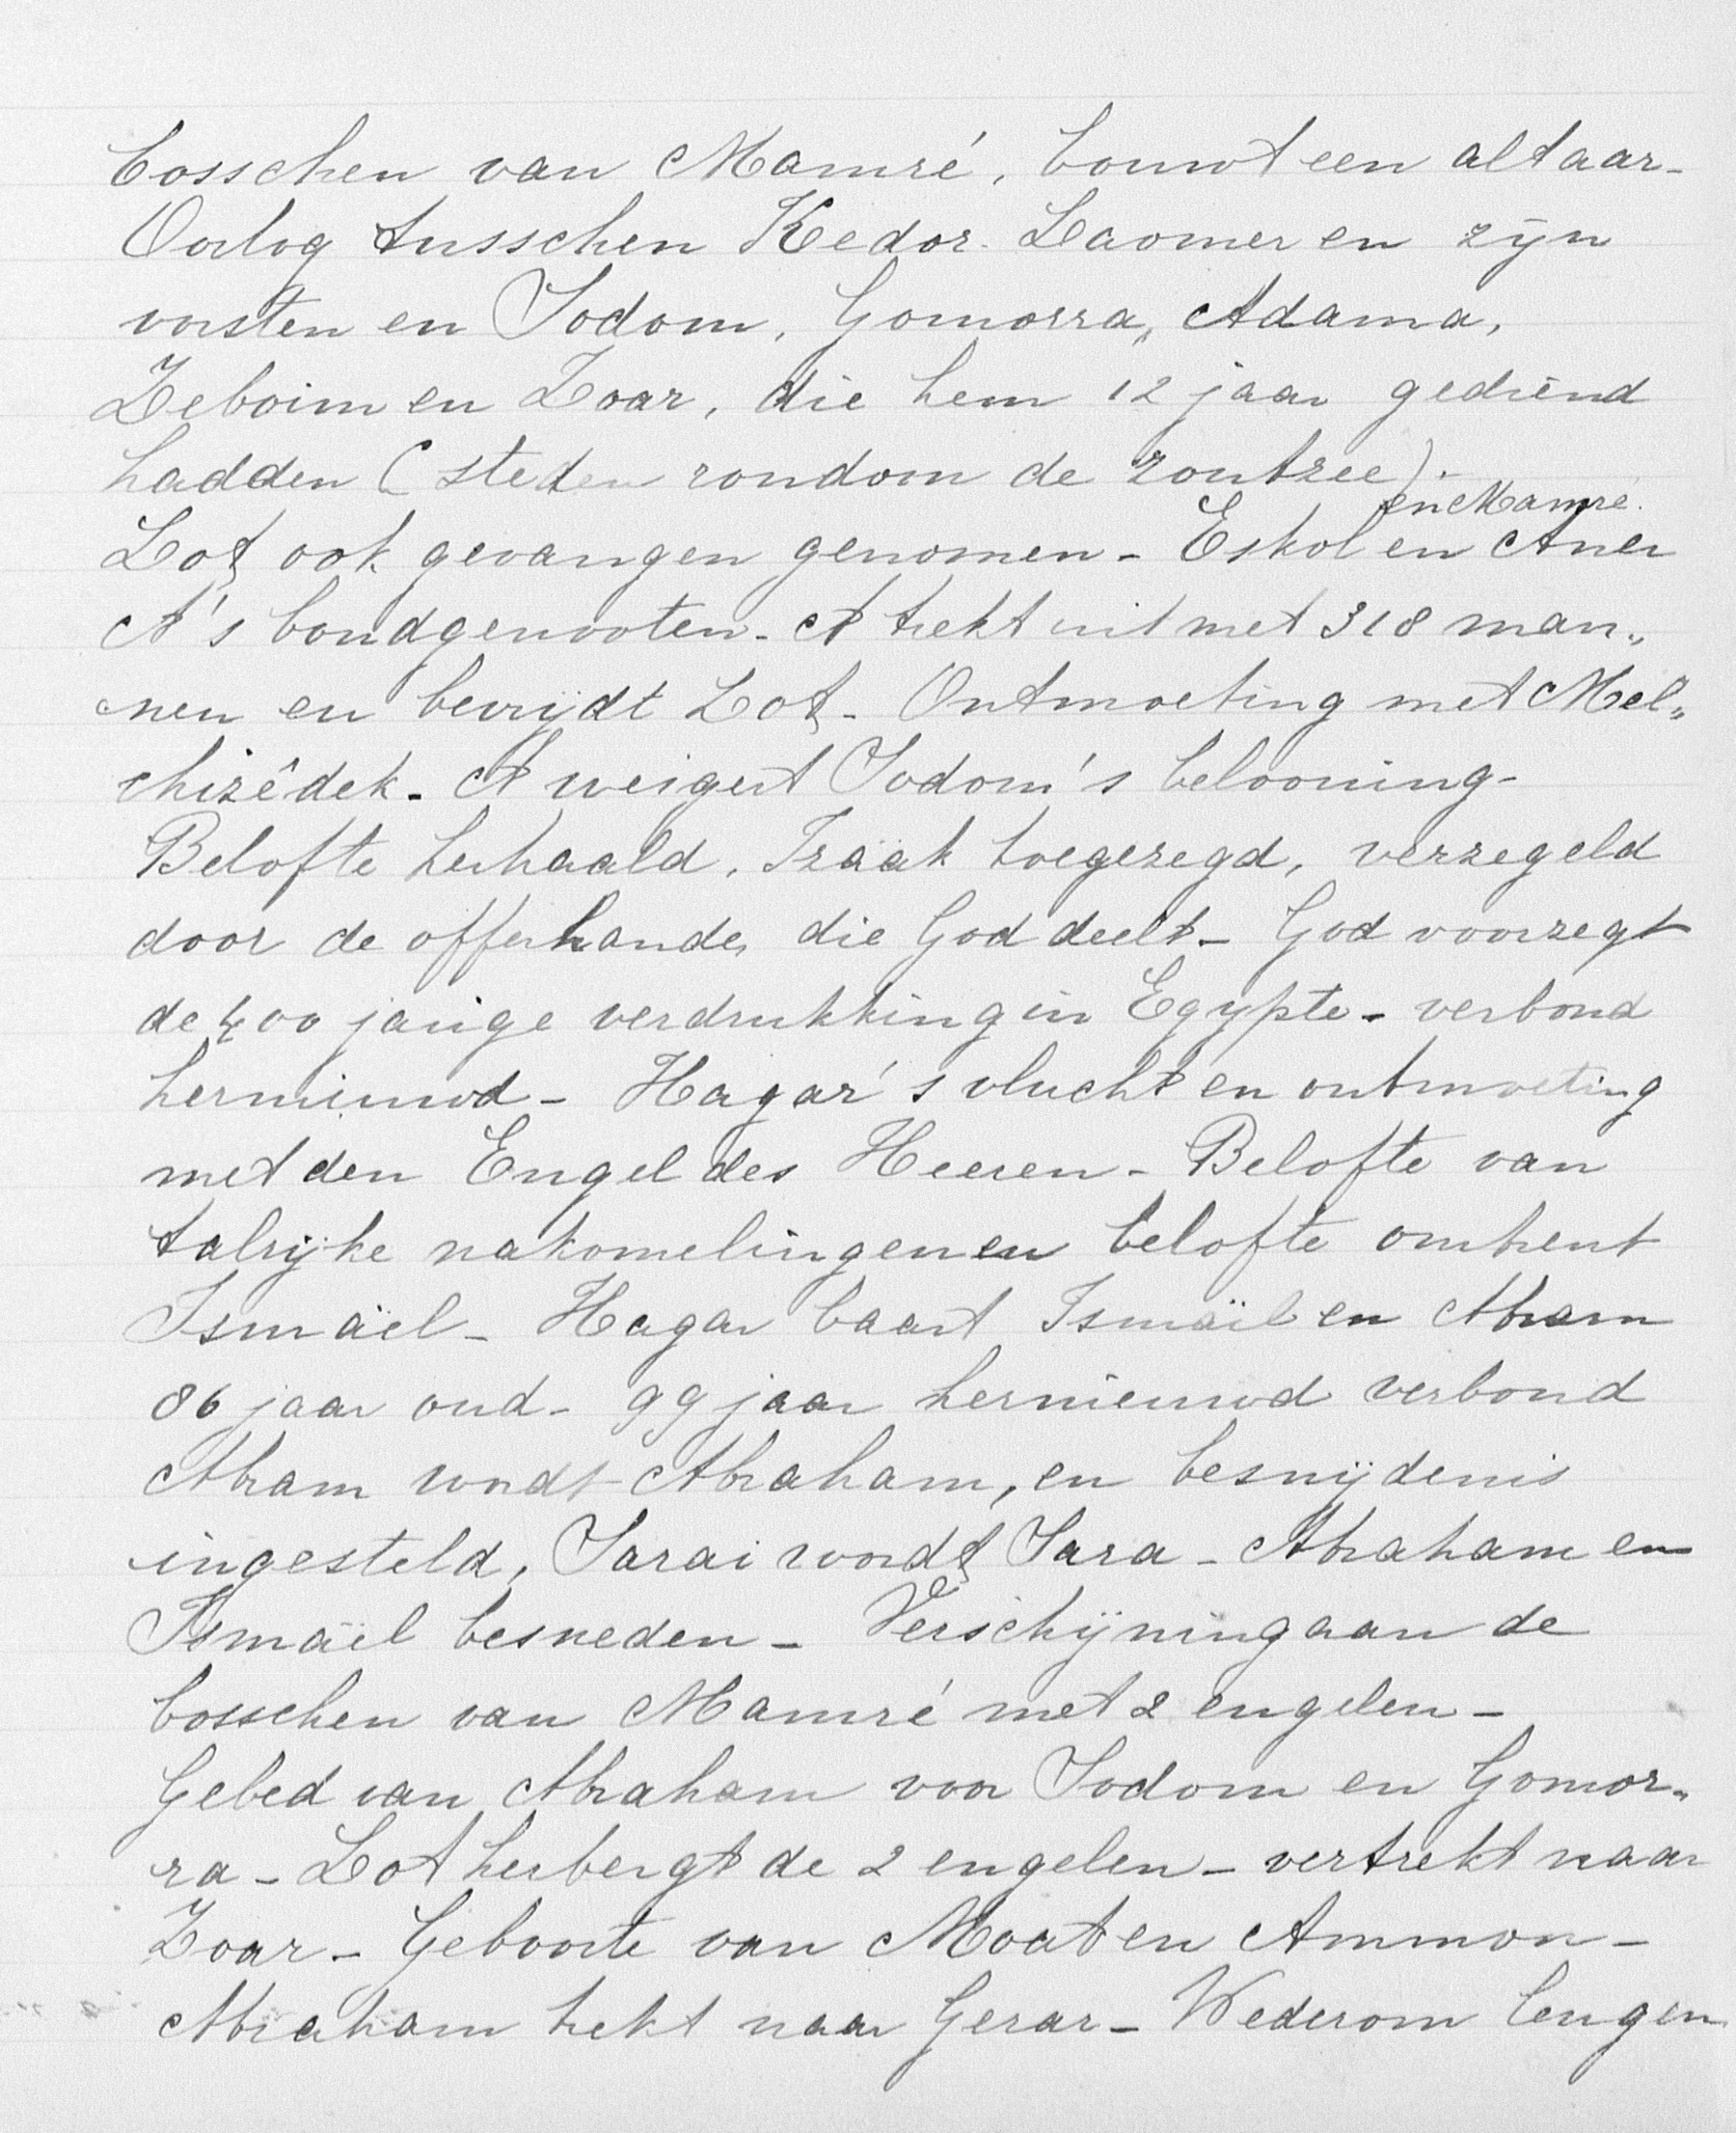 bosschen van Mamré, bouwt een altaar-
Oorlog tusschen Kedor-Laomer en zijn
vorsten en Sodom, Gomorra, Adama,
Zeboim en Zoar, die hem 12 jaar gediend
hadden (steden rondom de Zoutzee).
en Mamré.
Lot ook gevangen genomen - Eskol en Aner
A's bondgenooten - A trekt uit met 318 man„
nen en bevrijdt Lot - Ontmoeting met Mel„
chizêdek - A weigert Sodom's belooning -
Belofte herhaald, Izaäk toegezegd, verzegeld
door de offerhande, die God deelt - God voorzegt
de 400 jarige verdrukking in Egypte - verbond
hernieuwd - Hagar's vlucht en ontmoeting
met den Engel des Heeren - Belofte van
talrijke nakomelingen en belofte omtrent
Ismaël - Hagar baart Ismaël en Abram
86 jaar oud - 99 jaar hernieuwd verbond
Abram wordt Abraham, en besnijdenis
ingesteld, Sarai wordt Sara - Abraham en
Ismaël besneden - Verschijning aan de
bosschen van Mamré met 2 engelen -
Gebed van Abraham voor Sodom en Gomor„
ra - Lot herbergt de 2 engelen - vertrekt naar
Zoar - Geboorte van Moab en Ammon -
Abraham trekt naar Gerar - Wederom leugen